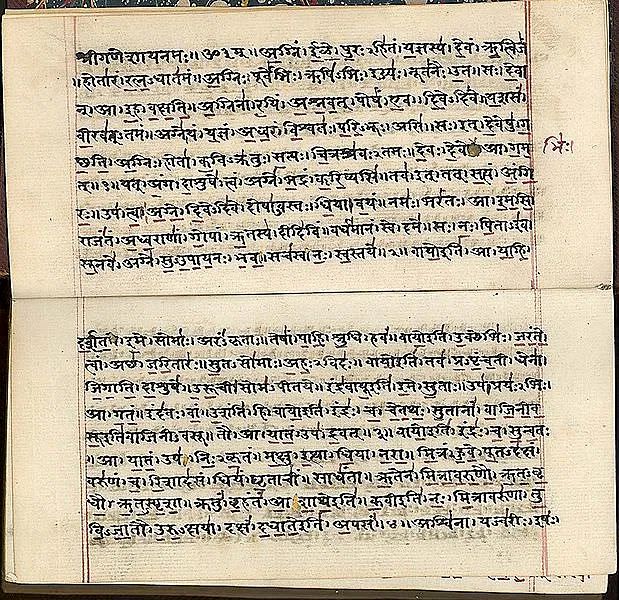 श्रीगणेशायनमः॥ ॐ३म्॥ अग्निं। ईळे। पुरःऽहितं। यज्ञस्य। देवं। ऋत्विजं
॥होतारं। रत्नऽधातमं॥ अग्निः। पूर्वेभिः। ऋषिऽभिः। ईड्यः। नूतनैः। उत। सः। देवा
न्। आ। इह। वक्षति॥ अग्निना। रयिं। अश्नवत्। पोषं। एव। दिवेऽदिवे। यशसं
वीरवत्ऽतमं॥ अग्ने। यं। यज्ञं। अध्वरं। विश्वतः। परिऽभूः। असि। सः। इत्। देवेषु। ग
च्छति॥ अग्निः। होता। कविऽक्रतुः। सत्यः। चित्रश्रवःऽतमः। देवः। देवे। आ। गम भिः।
त्॥१॥ यत्। अंग। दाशुषे। त्वं। अग्ने। भद्रं। करिष्यसि। तव। इत्। तत्। सत्यं। अंगि
रः॥ उप। त्वा। अग्ने। दिवेऽदिवे। दोषाऽवस्तः। धिया। वयं। नमः। भरंतः। आ। इमसि
राजंतं। अध्वराणां। गोपां। ऋतस्य। दीदिविं। वर्धमानं। स्वे। दमे॥ सः। नः। पिताऽइव
सूनवे। अग्ने। सुऽउपायनः। भव। सचस्व। नः। स्वस्तये॥२॥ वायोइति। आ। याहि
दर्शत। इमे। सोमाः। अरंऽकृताः॥ तेषां। पाहि। श्रुधि। हवं॥ वायोइति। उक्थेभिः। जरंते
त्वां। अच्छ। जरितारः॥ सुतऽसोमाः। अहःऽविदः॥ वायोइति। तव। प्रऽपृंचती। धेना
जिगाति। दाशुषे॥ उरूची। सोमऽपीतये॥ इंद्रवायूइति। इमे। सुताः॥ उप। प्रयःऽभिः।
आ। गतं। इंदवः। वां। उशंति। हि॥ वायोइति। इंद्रः। च। चेतथः। सुतानां। वाजिनीव
सूइतिवाजिनीऽवसू॥ तौ। आ। यातं। उप। द्रवत्॥३॥ वायोइति। इंद्रः। च। सुन्वतः
॥आ। यातं। उप। निःऽकृतं॥ मक्षु। इत्था। धिया। नरा॥ मित्रं। हुवे। पूतऽदक्षं
वरुणं। च। रिशादसं॥ धियं। घृताचीं। साधंता॥ ऋतेन। मित्रावरुणौ। ऋतऽवृ
धौ। ऋतऽस्पृशा॥ क्रतुं। बृहंतं। आशाथेइति॥ कवीइति। नः। मित्रावरुणा। तु
विऽजातौ। उरुऽक्षया॥ दक्षं। दधातेइति। अपसं॥४॥ अश्विना। यज्वरीः। इषः।